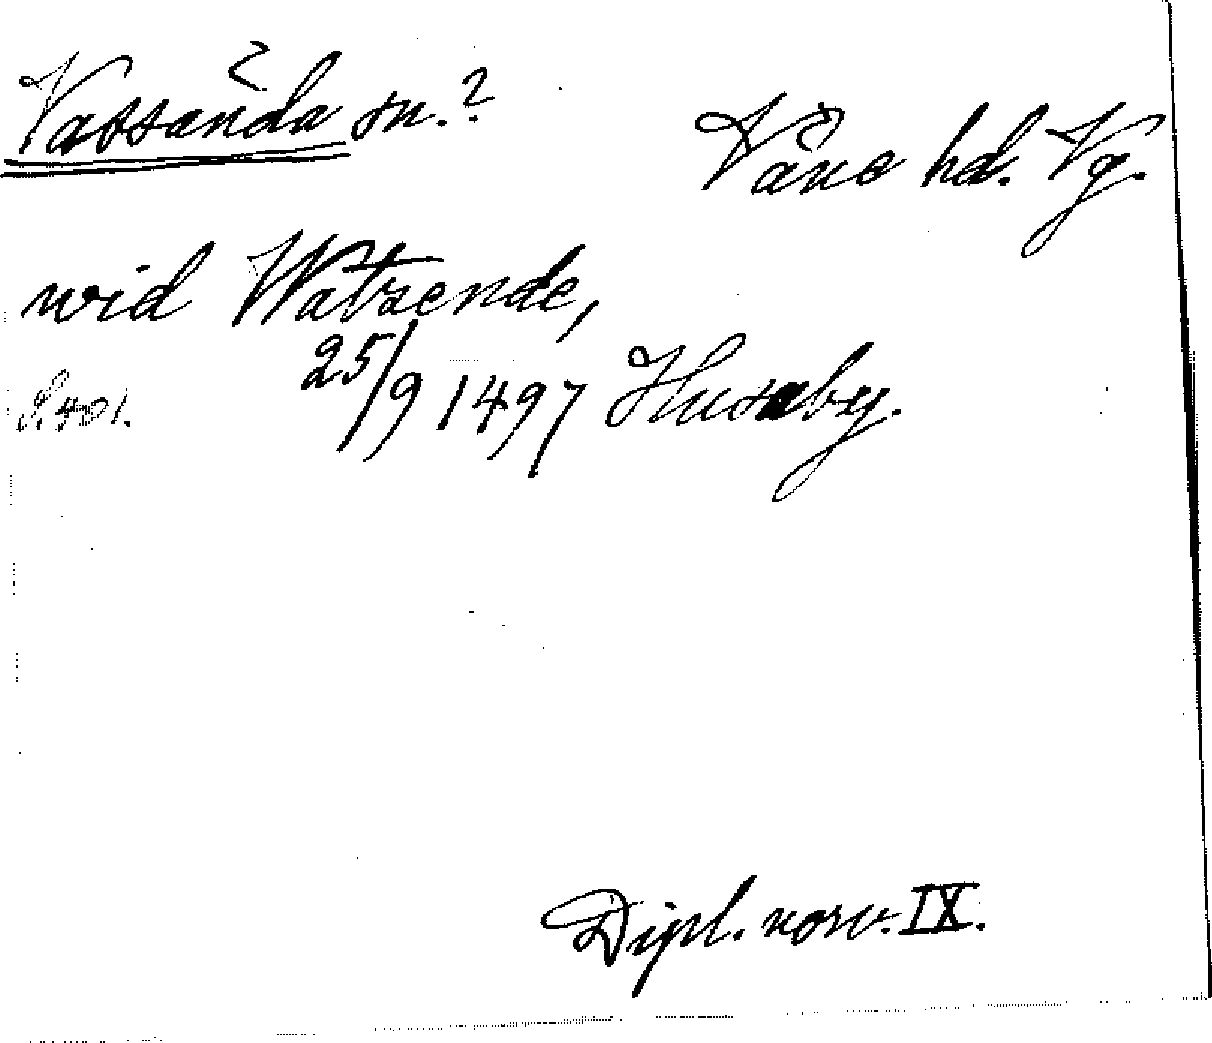 Vassända sn.?
Väne hd. Vg.
wid Watzende,
25/9 1497 Husaby.
S. 401.
Dipl. norv. IX.